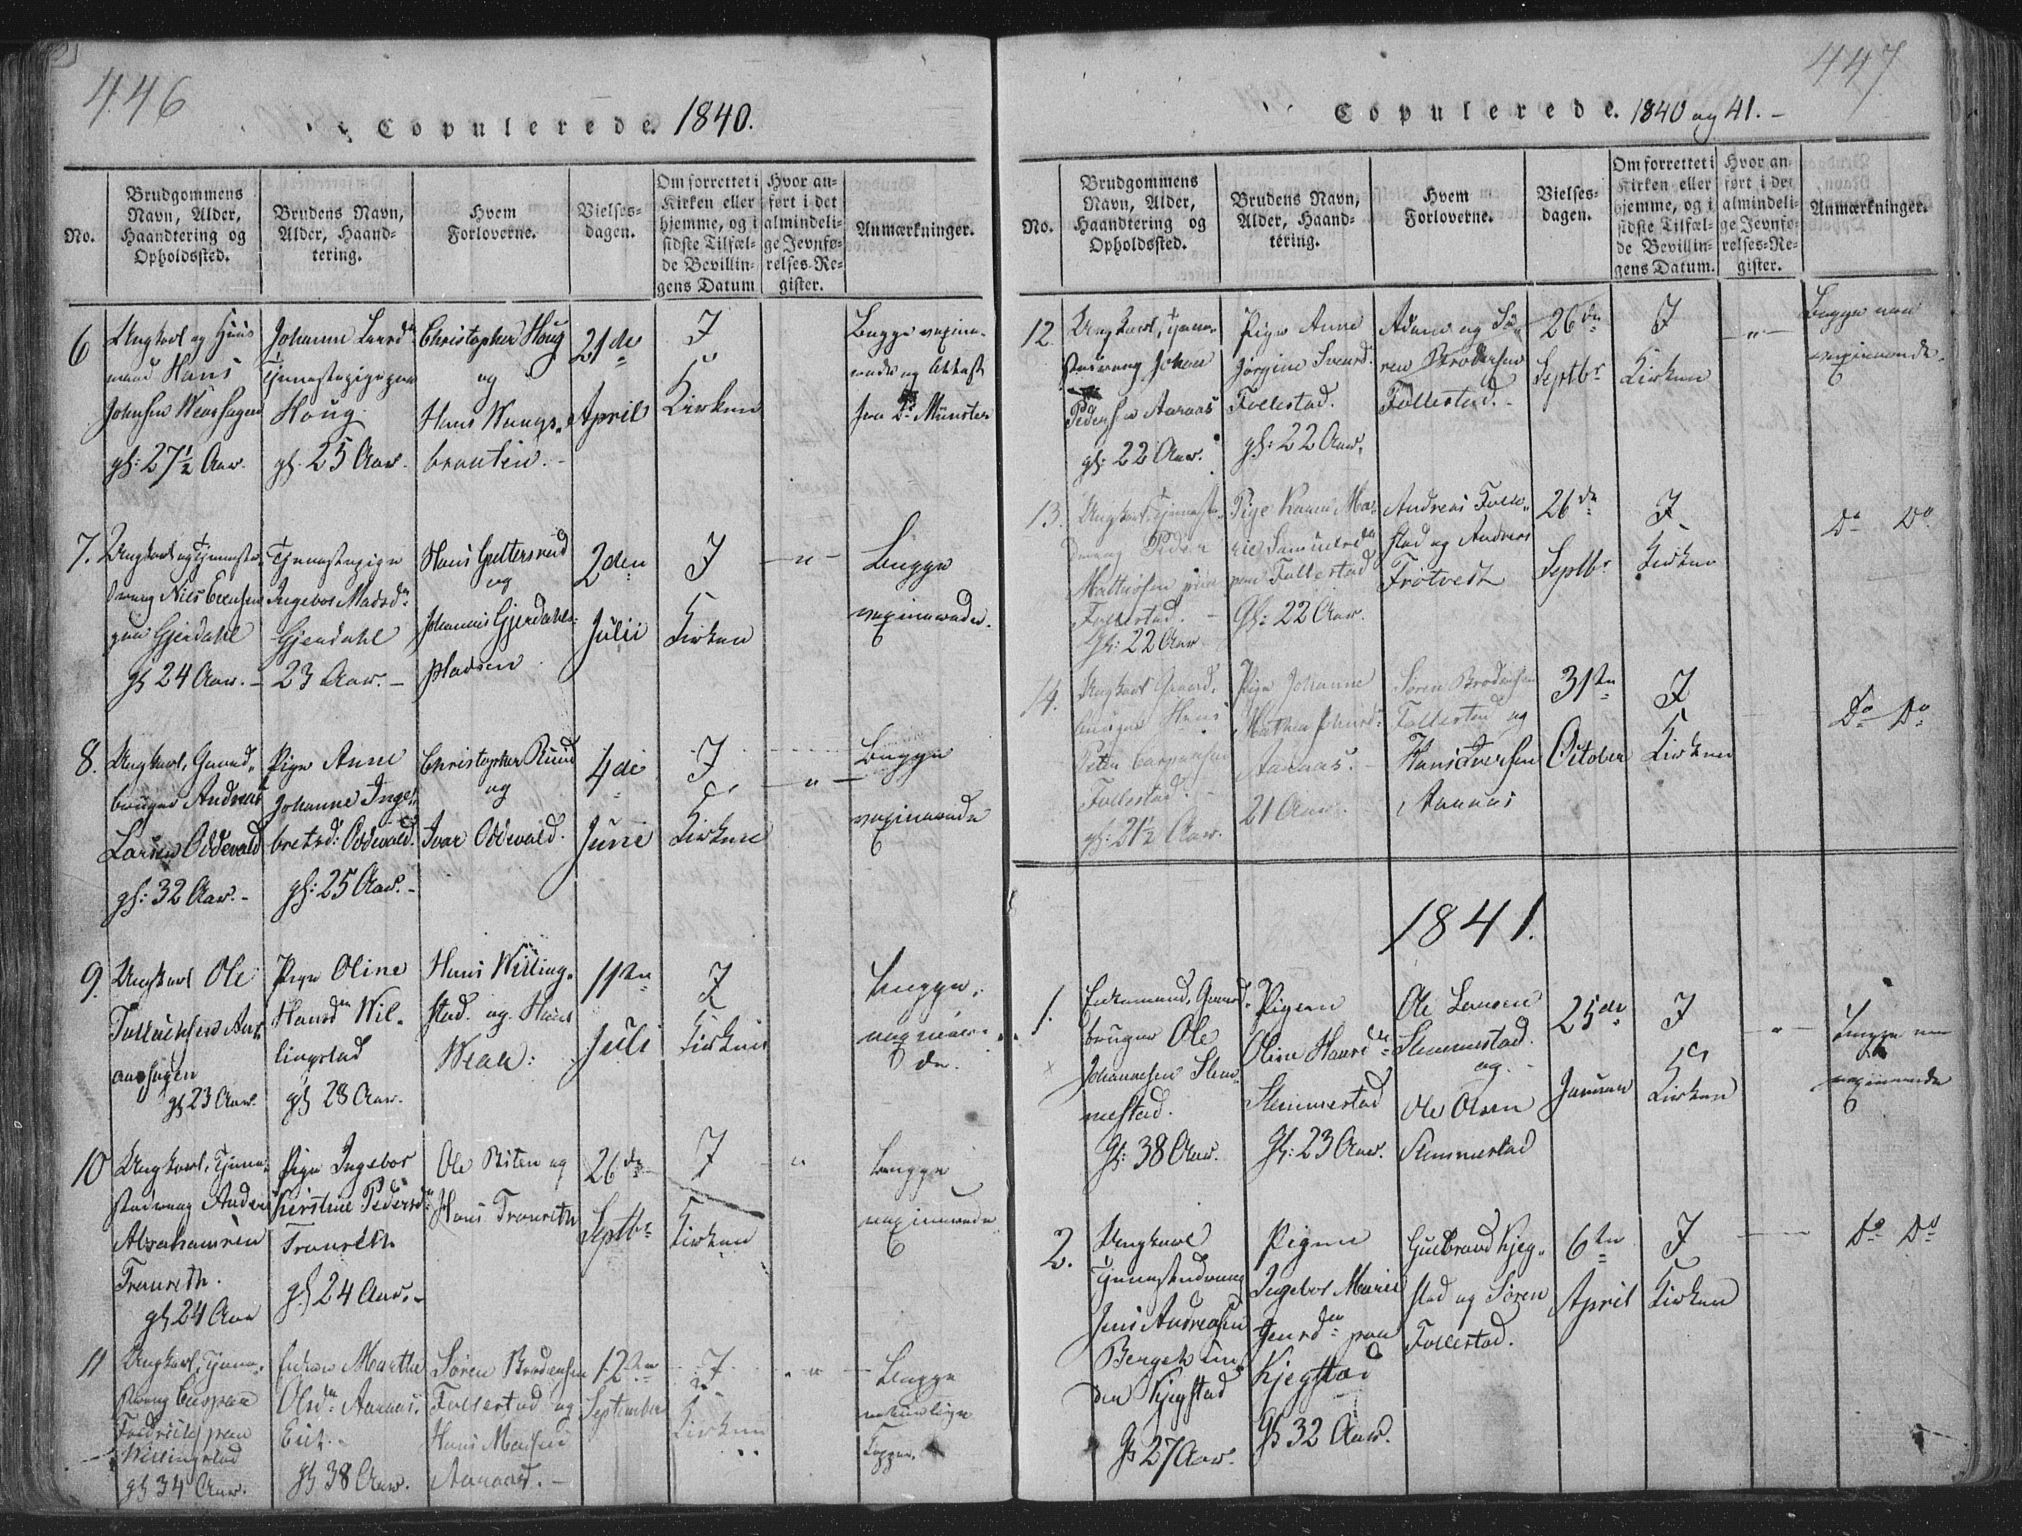 446
Copulerede. 1840.
No.
Brudgommens
Navn, Alder,
Haandtering og
Opholdssted.
Brudens Navn,
Alder, Haand-
tering.
Hvem
Forloverne.
Vielses-
dagen.
Om forrettet i
Kirken eller
hjemme, og i
sidste Tilfæl-
de Bevillin-
gens Datum
Hvor an-
ført i det
almindeli-
ge Jevnfø-
relses-Re-
gister.
Anmærkninger.
6
Ungkarl og Huus
mand Hans
Johnsen
gl: 27½ Aar.
Johanne
Tjenestepige paa
Houg
gl. 25 Aar.
Christopher Houg
og
Hans Wangs-
braaten.
21de
April
I
Kirken
Begge vaxine-
rede og Attest
fra Dr Münster
7.
Ungkarl og Tjeneste-
dreng Nils Evensen
paa Gjerdahl
gl 24 Aar.
Tjenestepige
Ingebor Madsdr
Gjerdahl
23 Aar.
Hans
og
Johannes Gjerdahls-
pladsen
2den
Julii
I
Kirken
— " —
Begge
vaxinerede.
8.
Ungkarl, Gaard-
bruger Andreas
Larsen Oddevald
gl: 32 Aar.
Pige Anne
Johanne Inge-
bretsd: Oddevald.
gl: 25 Aar.
Christopher Ruud
og
Ivar Oddevald.
4de
Junii
I
Kirken
— " —
Begge
vaxinerede
9.
Ungkarl Ole
gl 23 Aar.
Pige Oline
Hansdr Wil-
lingstad
gl 28 Aar.
Hans Willing-
stad og Hans
11te
Juli
I
Kirken
Begge
vaxinere-
de.
10
Ungkarl, Tjene-
stedreng Anders
Abrahamsen
Tranreth.
gl 24 Aar
Pige Ingebor
Kirstine Pedersdr
Tranreth
gl 24 Aar.
Ole og
Hans Tranreth
26de
Septbr
I
Kirken
"
Begge
vaxinerede
11
Ungkarl, Tjene-
dreng Caspar
paa
Willingstad
gl 34 Aar.
Enken Marthe
Olsdr Aaraas
gl 38 Aar.
Søren Brodersen
Follestad og
Hans
Aaraas.
12te
September
I
Kirken
"
Begge
naturlige
Kopper.
447
Copulerede. 1840 og 41.
No.
Brudgommens
Navn, Alder,
Haandtering og
Opholdssted.
Brudens Navn,
Alder, Haand-
tering.
Hvem
Forloverne.
Vielses-
dagen.
Om forrettet i
Kirken eller
hjemme, og i
sidste Tilfæl-
de Bevillin-
gens Datum.
Hvor an-
ført i det
almindeli-
ge Jevnfø-
relses-Re-
gister.
Anmærkninger.
12.
Ungkarl, Tjene-
stedreng Johan
Pedersen Aaraas
gl: 22 Aar.
Pige Anne
Jørgine
Follestad.
gl: 22 Aar.
Adam og Sø-
ren Brodersen
Follestad.
26de
Septbr
I
Kirken
— " —
Begge
vaxinerede.
13.
Ungkarl, Tjeneste-
dreng Peder
Mathisen paa
Follestad.
gl: 22 Aar
Pige Karen Ma-
rie Samuelsdr
paa Follestad
Gl: 22 Aar.
Andreas Folle-
stad og Andreas
Frøtvedt
26de
Septbr
I
Kirken
Do Do
14.
Ungkarl Gaard-
bruger Hans
Peter Caspersen
Follestad.
gl: 21½ Aar.
Pige Johanne
Mathea
Aaraas.
21 Aar.
Søren Brodersen
Follestad og
Hans Iversen
Aaraas
31te
October
I
Kirken
Do Do
1841.
1.
Enkemand, Gaard-
bruger Ole
Johannesen Slem-
mestad.
Gl: 38 Aar.
Pigen
Oline Hansdr
Slemmestad
Gl: 23 Aar.
Ole Larsen
Slemmestad.
og
Ole Olsen
Slemmestad
25de
Januar
I
Kirken
— " —
Begge
vaxinerede
2.
Ungkarl
Tjenestedreng
Jens Andreasen
Kjegstad
Gl 27 Aar.
Pigen
Ingebor Marie
paa
Kjegstad
Gl 32 Aar.
Gulbrand Kjeg-
stad og Søren
Follestad.
6te
April
I
Kirken
Do Do